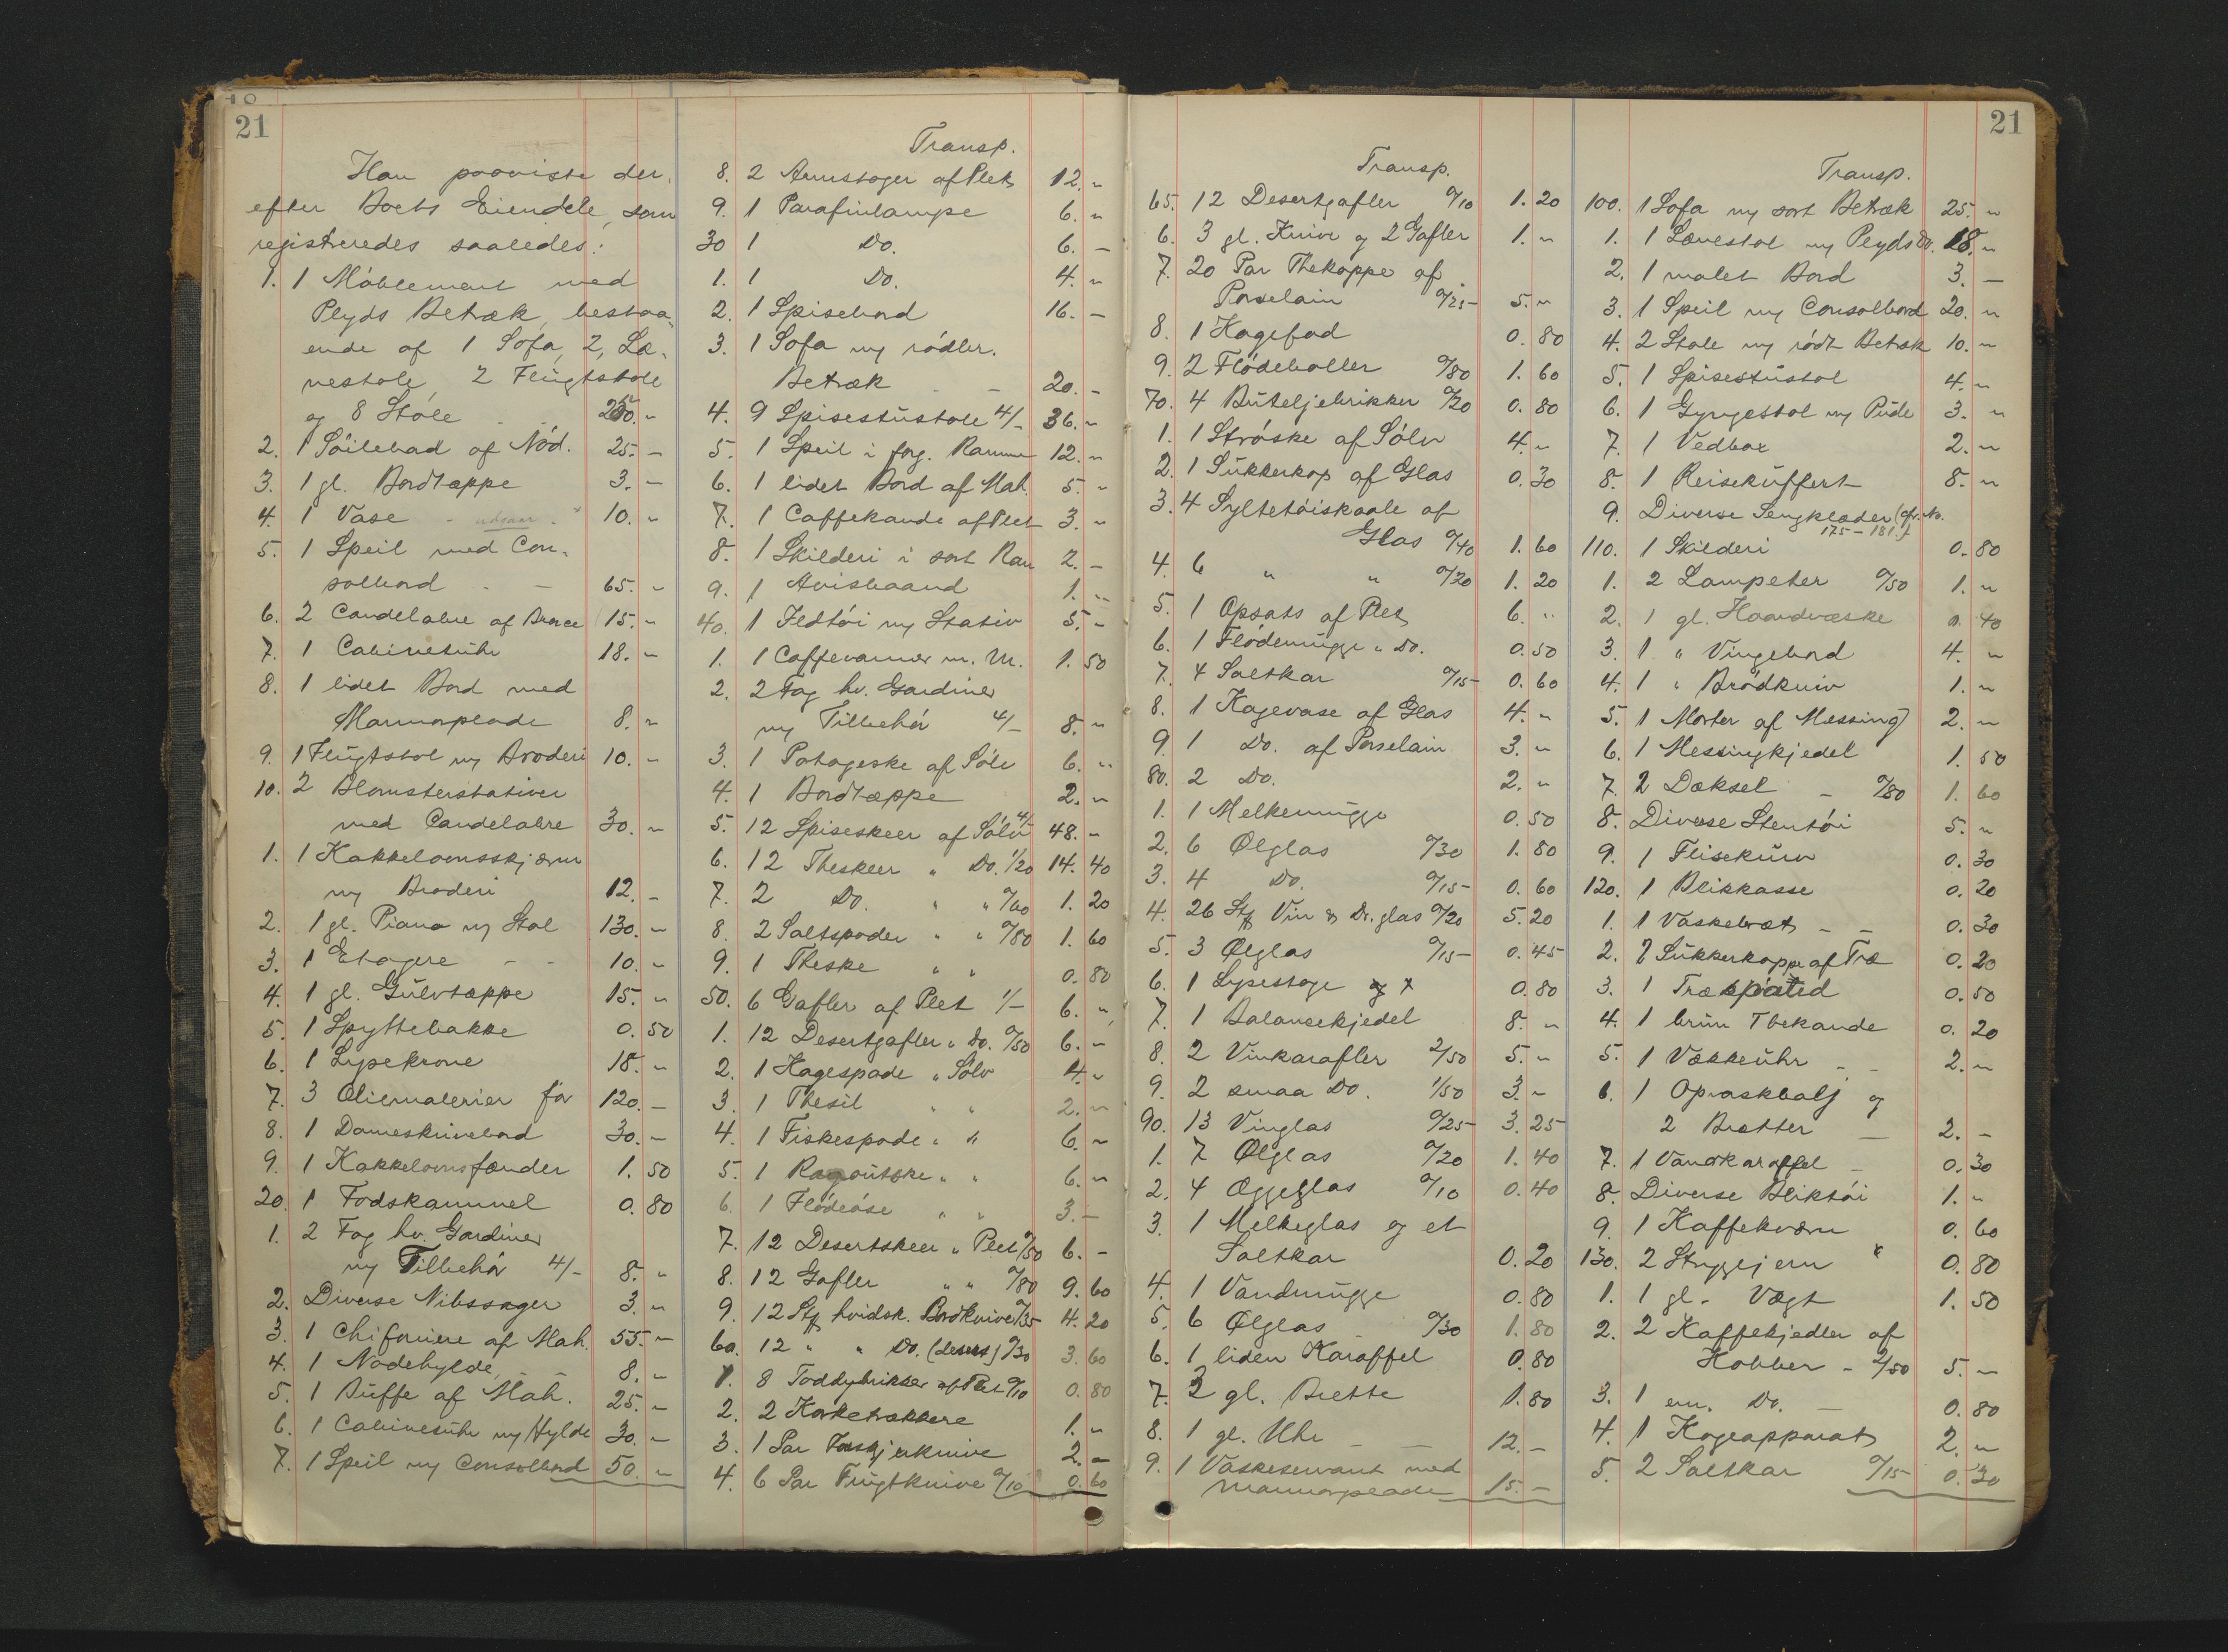 21
Han paaviste der-
efter Boets Eiendele, som
registreredes saaledes:
1. 1 Möblement med
Plyds Betræk, bestaa-
ende af 1 Sofa, 2 Læ-
nestole, 2 Flugtstole
og 8 Stole 250. "
2. 1 Söilebord af Nöd. 25. -
3. 1 gl. Bordtæppe 3. -
4. 1 Vase - 10. "
5. 1 Speil med Con-
solbord - - 65. -
6. 2 Candelabre af Bronce 15. "
7. 1 Cabinetsuhr 18. "
8. 1 lidet Bord med
Marmorplade 8. "
9. 1 Flugtstol m/ Broderi 10. "
10. 2 Blomsterstativer
med Candelabre 30. "
1. 1 Kakkelovnsskjærm
m/ Broderi 12. -
2. 1 gl. Piano m/ Stol 130. "
3. 1 Etagere - - 10. "
4. 1 gl. Gulvtæppe 15. "
5. 1 Spyttebakke 0. 50
6. 1 Lysekrone 18. "
7. 3 Oliemalerier for 120. -
8. 1 Dameskrivebord 30. -
9. 1 Kakkelovnsfænder 1. 50
20. 1 Fodskammel 0. 80
1. 2 Fag hv. Gardiner
m/ Tilbehör 4/- 8. "
2. Diverse Nibssager 3. "
3. 1 Chifoniere af Mah. 55. "
4. 1 Nodehylde - - 8. -
5. 1 Buffe af Mah. 25. "
6. 1 Cabinetsuhr m/ Hylde 30. "
7. 1 Speil m/ Consolbord 50. "
Transp.
8. 2 Armstager af Plet 12. "
9. 1 Parafinlampe 6. "
30 1 Do. 6. -
1. 1 Do. 4. "
2. 1 Spisebord 16. -
3. 1 Sofa m/ rödbr.
Betræk - - 20. -
4. 9 Spisestustole 4/- 36. "
5. 1 Speil i forg. Ramme 12. "
6. 1 lidet Bord af Mah. 5. "
7. 1 Caffekande af Plet 3. "
8. 1 Skilderi i sort Ram 2. -
9. 1 Avisbaand 1. "
40. 1 Ildtöi m/ Stativ 5. -
1. 1 Caffevarmer m. M. 1. 50
2. 2 Fag hv. Gardiner
m/ Tilbehör 4/- 8. "
3. 1 Potageske af Sölv 6. "
4. 1 Bordtæppe 2. "
5. 12 Spiseskeer af Sölv 4/- 48. "
6. 12 Theskeer " Do. 1/20 14. 40
7. 2 Do. " " 0/60 1. 20
8. 2 Saltspader " " 0/80 1. 60
9. 1 Theske " " 0. 80
50. 6 Gafler af Plet 1/- 6. "
1. 12 Desertgafler " Do. 0/50 6. "
2. 1 Kagespade " Sölv 4. "
3. 1 Thesil " " 2. "
4. 1 Fiskespade " " 6. "
5. 1 Ragoutske " " 6. "
6. 1 Flödeöse " " 3. -
7. 12 Desertskeer " Plet 0/50 6. -
8. 12 Gafler " " 0/80 9. 60
9. 12 Stk hvidsk. Bordknive 0/35 4. 20
60. 12 " " Do. (desert) 0/30 3. 60
1. 8 Toddybrikker af Plet 0/10 0. 80
2. 2 Korketrækkere 1. "
3. 1 Par Forskjærknive 2. -
4. 6 Par Frugtknive 0/10 0. 60
21
Transp.
65. 12 Desertgafler 0/10 1. 20
6. 3 gl. Knive og 2 Gafler 1. "
7. 20 Par Thekoppe af
Porselain 0/25 5. "
8. 1 Kagefad 0. 80
9. 2 Flödeboller 0/80 1. 60
70. 4 Buteljebrikker 0/20 0. 80
1. 1 Ströske af Sölv 4. "
2. 1 Sukkerkop af Glas 0. 30
3. 4 Syltetöiskaale af
Glas 0/40 1. 60
4. 6 " " 0/20 1. 20
5. 1 Opsats af Plet 6. "
6. 1 Flödemugge " Do. 0. 50
7. 4 Saltkar 0/15 0. 60
8. 1 Kagevase af Glas 4. "
9. 1 Do. af Porselain 3. "
80. 2 Do. 2. "
1. 1 Melkemugge 0. 50
2. 6 Ølglas 0/30 1. 80
3. 4 Do. 0/15 0. 60
4. 26 Stk Vin & Dr. glas 0/20 5. 20
5. 3 Ølglas 0/15 0. 45
6. 1 Lysestage 0. 80
7. 1 Balansekjedel 8. "
8. 2 Vinkarafler 2/50 5. "
9. 2 smaa Do. 1/50 3. "
90. 13 Vinglas 0/25 3. 25
1. 7 Ølglas 0/20 1. 40
2. 4 Æggeglas 0/10 0. 40
3. 1 Melkeglas og et
Saltkar 0. 20
4. 1 Vandmugge 0. 80
5. 6 Ølglas 0/30 1. 80
6. 1 liden Karaffel 0. 80
7. 3 gl. Brette 1. 80
8. 1 gl. Uhr - - 12. -
9. 1 Vaskeservant med
Marmorplade 15. -
Transp.
100. 1 Sofa m/ sort Betræk 25. "
1. 1 Lænestol m/ Plyds Do. 18. "
2. 1 malet Bord 3. -
3. 1 Speil m/ Consolbord 20. "
4. 2 Stole m/ rödt Betræk 10. "
5. 1 Spisestustol 4. "
6. 1 Gyngestol m/ Pude 3. "
7. 1 Vedbox 2. "
8. 1 Reisekuffert 8. "
9. Diverse Sengklæder (cfr. No.
175 - 181.)
110. 1 Skilderi 0. 80
1. 2 Lampeter 0/50 1. "
2. 1 gl. Haandvæske 0. 40
3. 1 " Vingebord 4. "
4. 1 " Brödkniv 1. "
5. 1 Morter af Messing 2. "
6. 1 Messingkjedel 1. 50
7. 2 Dæksel - 0/80 1. 60
8. Diverse Stentöi 5. "
9. 1 Flisekurv 0. 30
120. 1 Blikkasse 0. 20
1. 1 Vaskebræt - - 0. 30
2. 2 Sukkerkoppe af Træ 0. 20
3. 1 Træspüted 0. 50
4. 1 brun Thekande 0. 20
5. 1 Vækkeuhr - - 2. "
6. 1 Opvaskbalj og
2 Brætter - 2. -
7. 1 Vandkaraffel - 0. 30
8. Diverse Bliktöi 1. "
9. 1 Kaffekværn 0. 60
130. 2 Strygejern 0. 80
1. 1 gl. Vægt 1. 50
2. 2 Kaffekjedler af
Kobber - 2/50 5. -
3. 1 em. Do. - 0. 80
4. 1 Kogeapparat 2. "
5. 2 Saltkar 0/15 0. 30